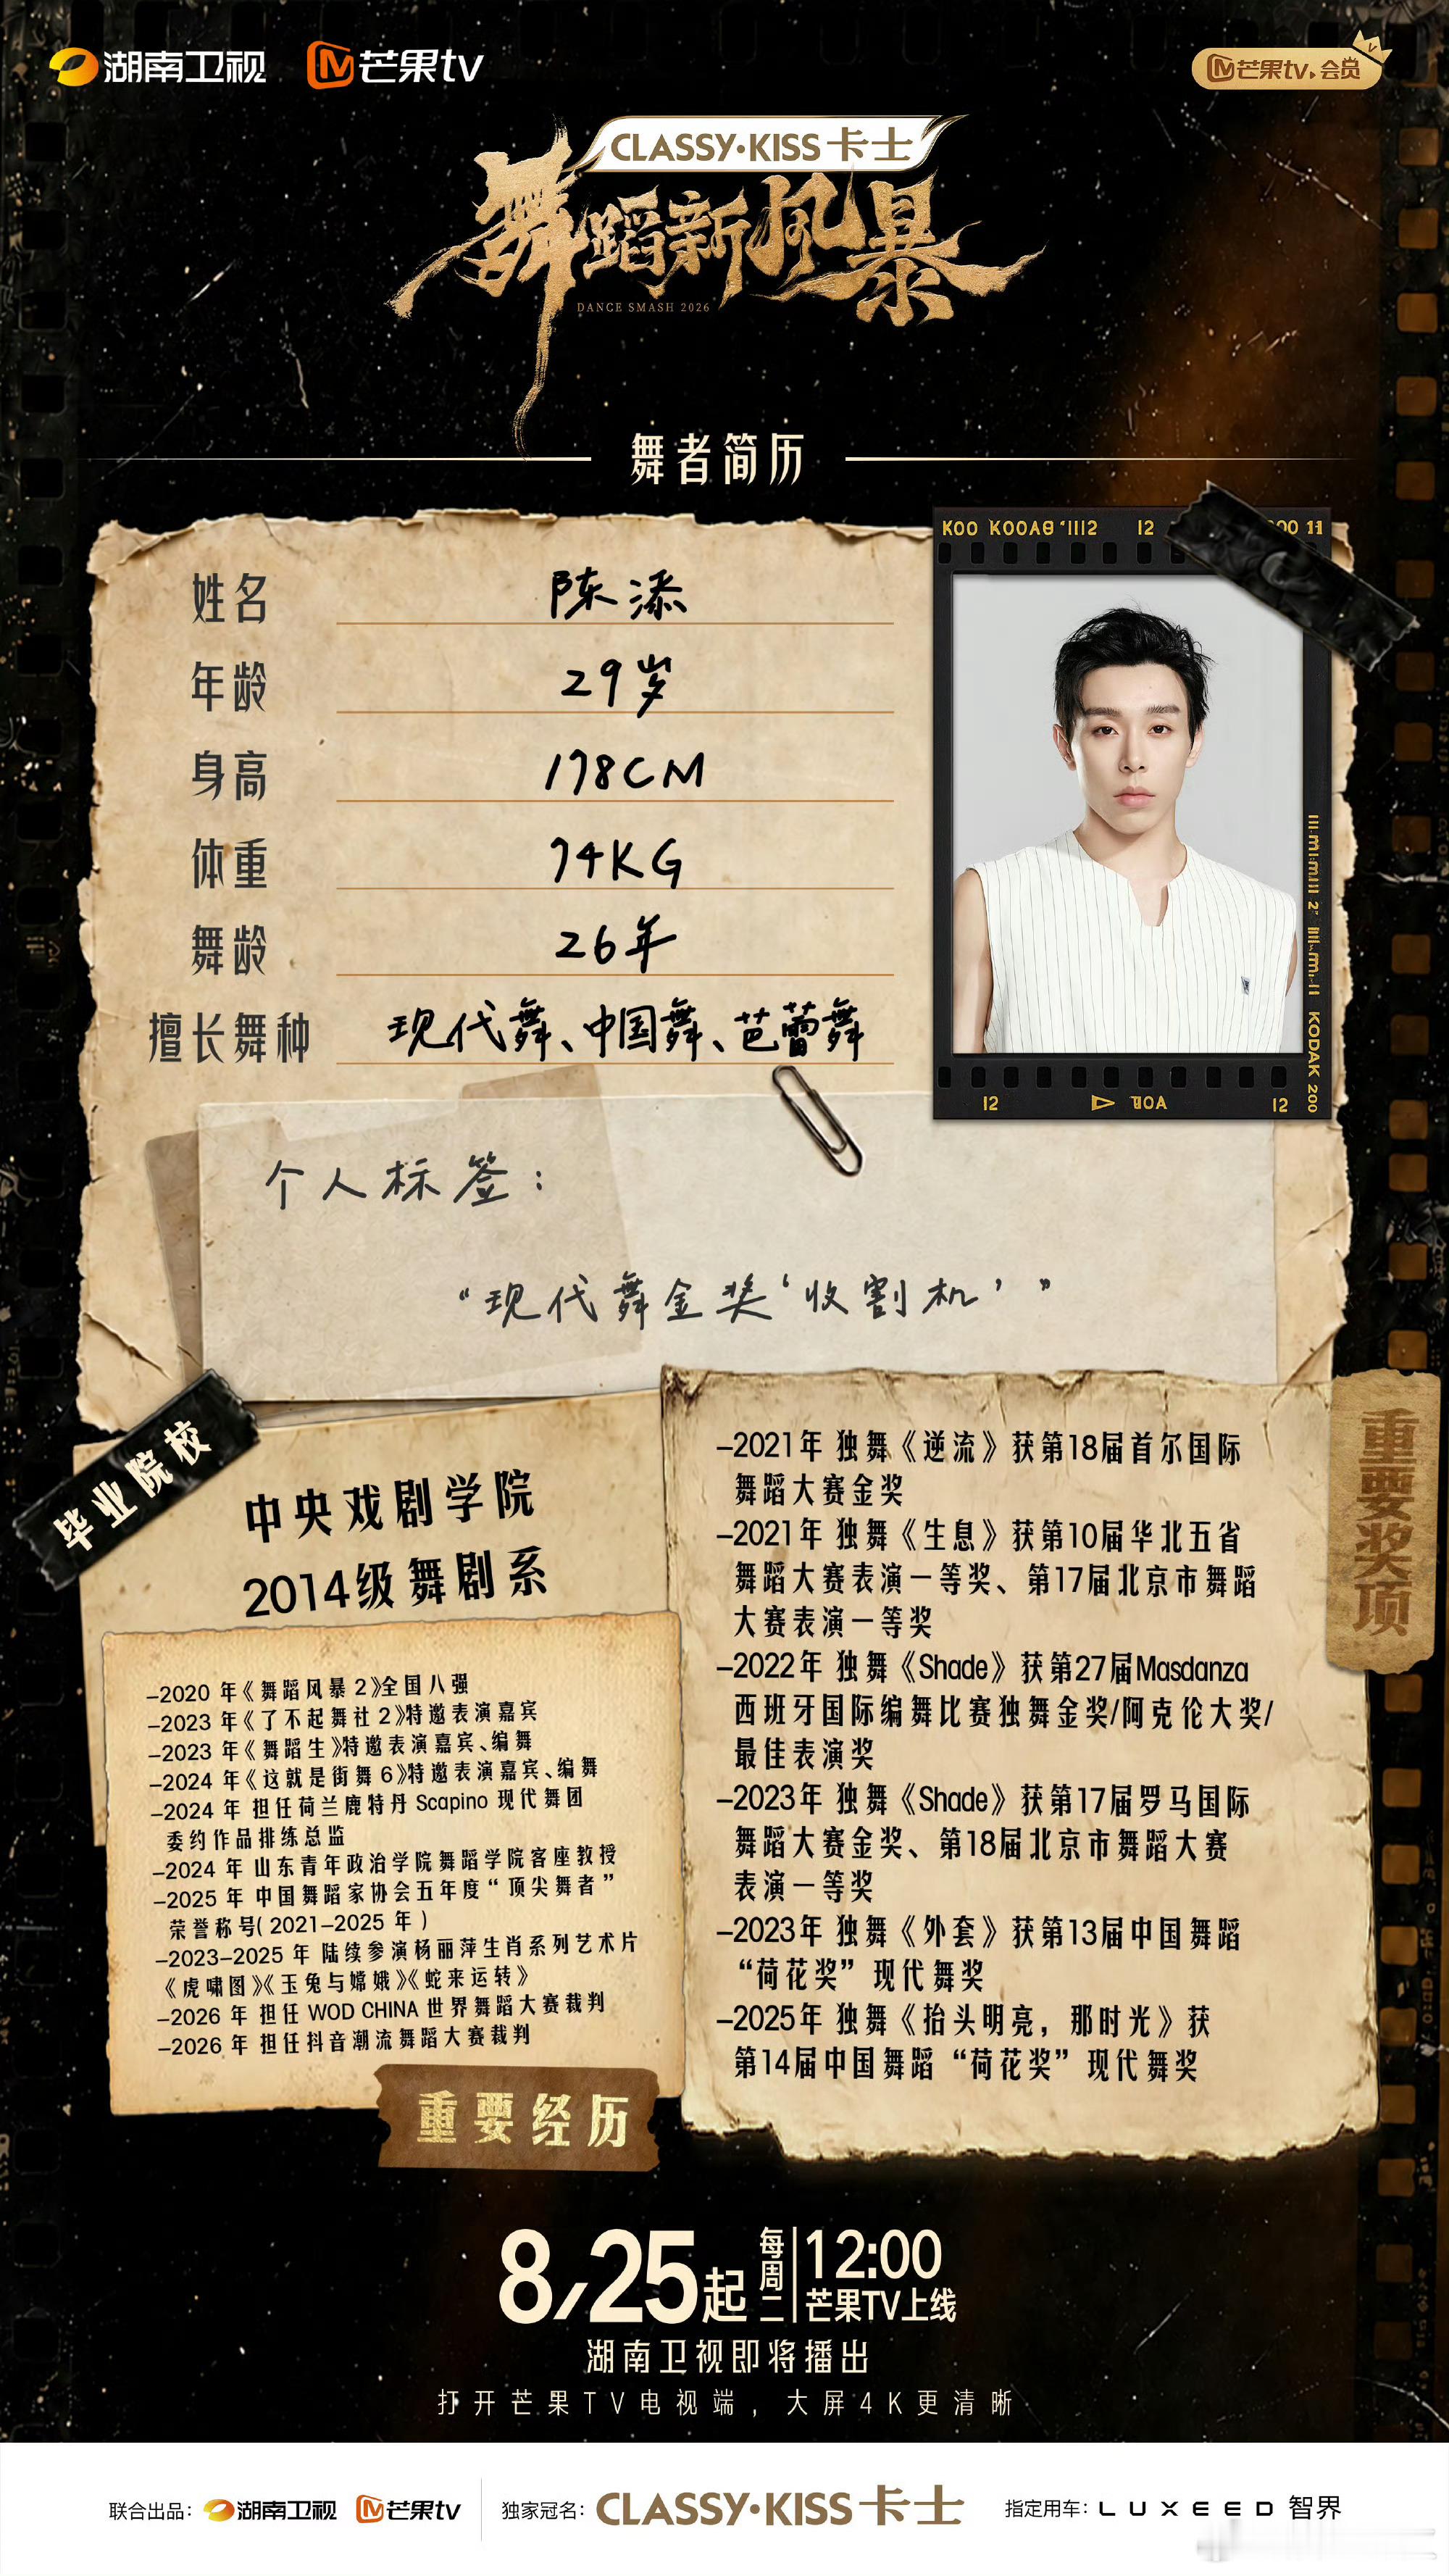 湖南卫视 芒果tv
芒果tv会员
CLASSY·KISS卡士
舞蹈新风暴
DANCE SMASH 2026
舞者简历
姓名 陈添
年龄 29岁
身高 178CM
体重 74KG
舞龄 26年
擅长舞种 现代舞、中国舞、芭蕾舞
12
12
12
KODAK 200
个人标签：
“现代舞金奖‘收割机’”
毕业院校
中央戏剧学院
2014级舞剧系
–2020 年《舞蹈风暴2》全国八强
–2023 年《了不起舞社2》特邀表演嘉宾
–2023 年《舞蹈生》特邀表演嘉宾、编舞
–2024 年《这就是街舞6》特邀表演嘉宾、编舞
–2024 年 担任荷兰鹿特丹 Scapino 现代舞团
委约作品排练总监
–2024 年 山东青年政治学院舞蹈学院客座教授
–2025 年 中国舞蹈家协会五年度“顶尖舞者”
荣誉称号(2021–2025 年)
–2023–2025 年 陆续参演杨丽萍生肖系列艺术片
《虎啸图》《玉兔与嫦娥》《蛇来运转》
–2026 年 担任 WOD CHINA 世界舞蹈大赛裁判
–2026 年 担任抖音潮流舞蹈大赛裁判
重要经历
重要奖项
–2021年 独舞《逆流》获第18届首尔国际
舞蹈大赛金奖
–2021年 独舞《生息》获第10届华北五省
舞蹈大赛表演一等奖、第17届北京市舞蹈
大赛表演一等奖
–2022年 独舞《Shade》获第27届Masdanza
西班牙国际编舞比赛独舞金奖/阿克伦大奖/
最佳表演奖
–2023年 独舞《Shade》获第17届罗马国际
舞蹈大赛金奖、第18届北京市舞蹈大赛
表演一等奖
–2023年 独舞《外套》获第13届中国舞蹈
“荷花奖”现代舞奖
–2025年 独舞《抬头明亮，那时光》获
第14届中国舞蹈“荷花奖”现代舞奖
8/25起 每周二 12:00
芒果TV上线
湖南卫视即将播出
打开芒果TV电视端，大屏4K更清晰
联合出品：湖南卫视 芒果tv 独家冠名：CLASSY·KISS卡士 指定用车：LUXEED 智界